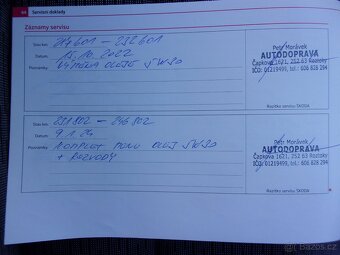 44 Servisní doklady
Záznamy servisu
Stav km: 217601 - 232601
Datum: 15.10.2022
Poznámky: VÝMĚNA OLEJE 5W30
Petr Morávek
AUTODOPRAVA
Čapkova 1621, 252 63 Roztoky
IČO: 01219499, tel.: 606 828 294
Razítko servisu ŠKODA
Stav km: 231802 - 246802
Datum: 9.1.24
Poznámky: KOMPLET MOTOR OLEJ 5W30
+ ROZVODY
Petr Morávek
AUTODOPRAVA
Čapkova 1621, 252 63 Roztoky
IČO: 01219499, tel.: 606 828 294
Razítko servisu ŠKODA